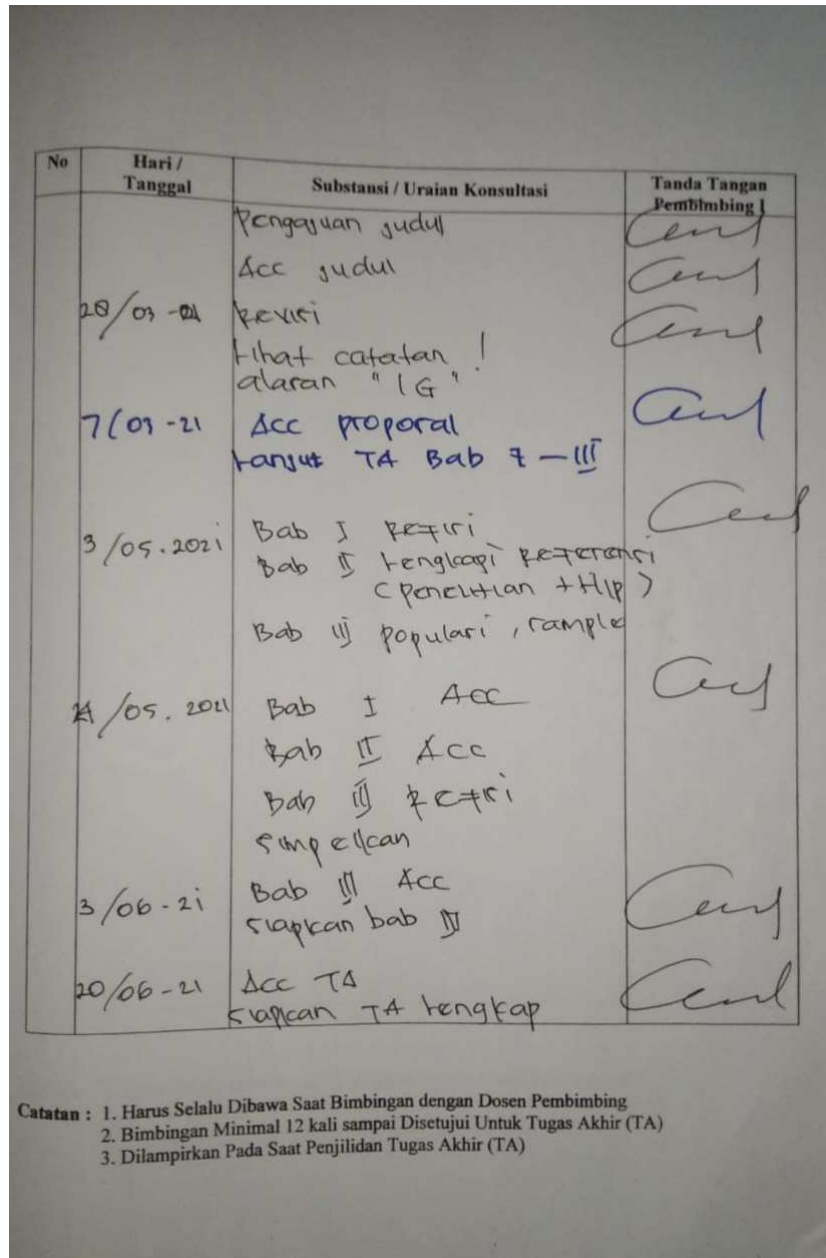 No Hari / Tanggal Substansi / Uraian Konsultasi Tanda Tangan Pembimbing I
Pengajuan judul
Acc judul
28/03-21 Revisi
Lihat catatan !
alasan "IG"
7/03-21 Acc proposal
Lanjut TA Bab I - III
3/05.2021 Bab I Revisi
Bab II Lengkapi Referensi
(Penelitian + Hlp)
Bab III populasi, sample
/05.2021 Bab I Acc
Bab II Acc
Bab III Revisi
simpelkan
3/06-21 Bab III Acc
siapkan bab IV
20/06-21 Acc TA
siapkan TA Lengkap
Catatan : 1. Harus Selalu Dibawa Saat Bimbingan dengan Dosen Pembimbing
2. Bimbingan Minimal 12 kali sampai Disetujui Untuk Tugas Akhir (TA)
3. Dilampirkan Pada Saat Penjilidan Tugas Akhir (TA)